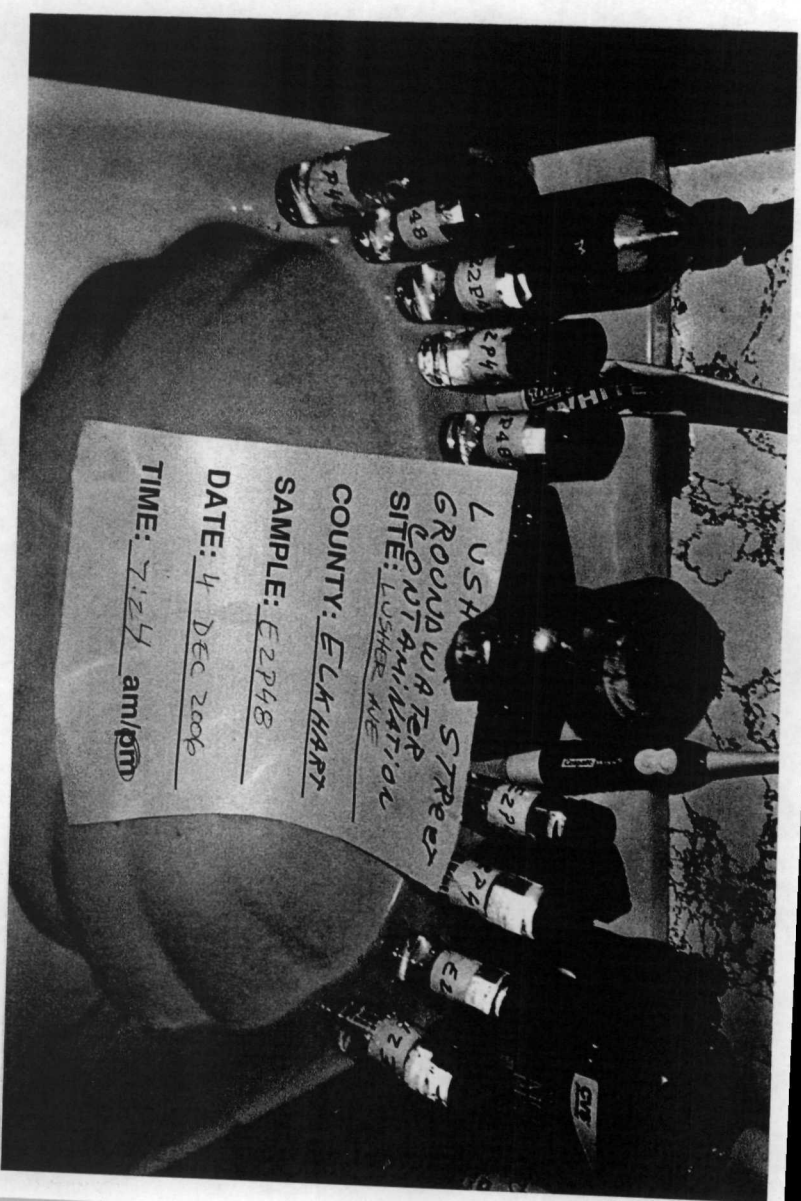 LUSH STREET
GROUNDWATER
CONTAMINATION
SITE: LUSHER AVE
COUNTY: ELKHART
SAMPLE: E2P48
DATE: 4 DEC 2006
TIME: 7:24 am/pm
P48
48
2P4
2P48
P48
WHITE
Colgate
E2P
2P4
E2
CVS